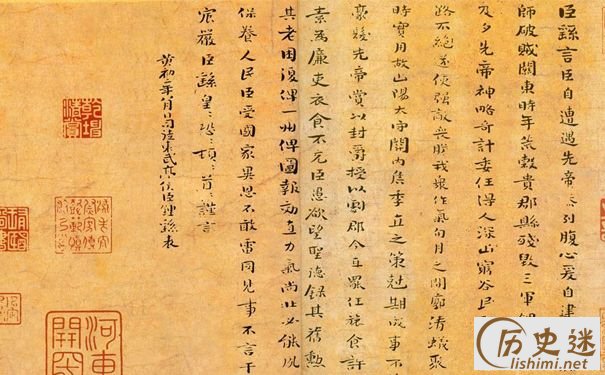 臣繇言臣自遭遇先帝忝列腹心爰自建
師破賊關東時年荒穀貴郡縣殘毀三軍
及夕先帝神略奇計委任得人深山窮谷民
路不絕遂使強敵喪膽我眾作氣旬月之間廓清蟻聚
時實用故山陽太守關內侯季直之策尅期成事不
豪髮先帝賞以封爵授以劇郡今直罷任旅食許
素為廉吏衣食不充臣愚欲望聖德錄其舊勳
其老困復俾一州俾圖報効直力氣尚壯必能夙
保養人民臣受國家異恩不敢雷同見事不言干
宸嚴臣繇皇〻恐〻頓〻首〻謹言
黃初二年八月日司徒東武亭侯臣鍾繇表
乾隆
河東
历史迷
lishimi.net